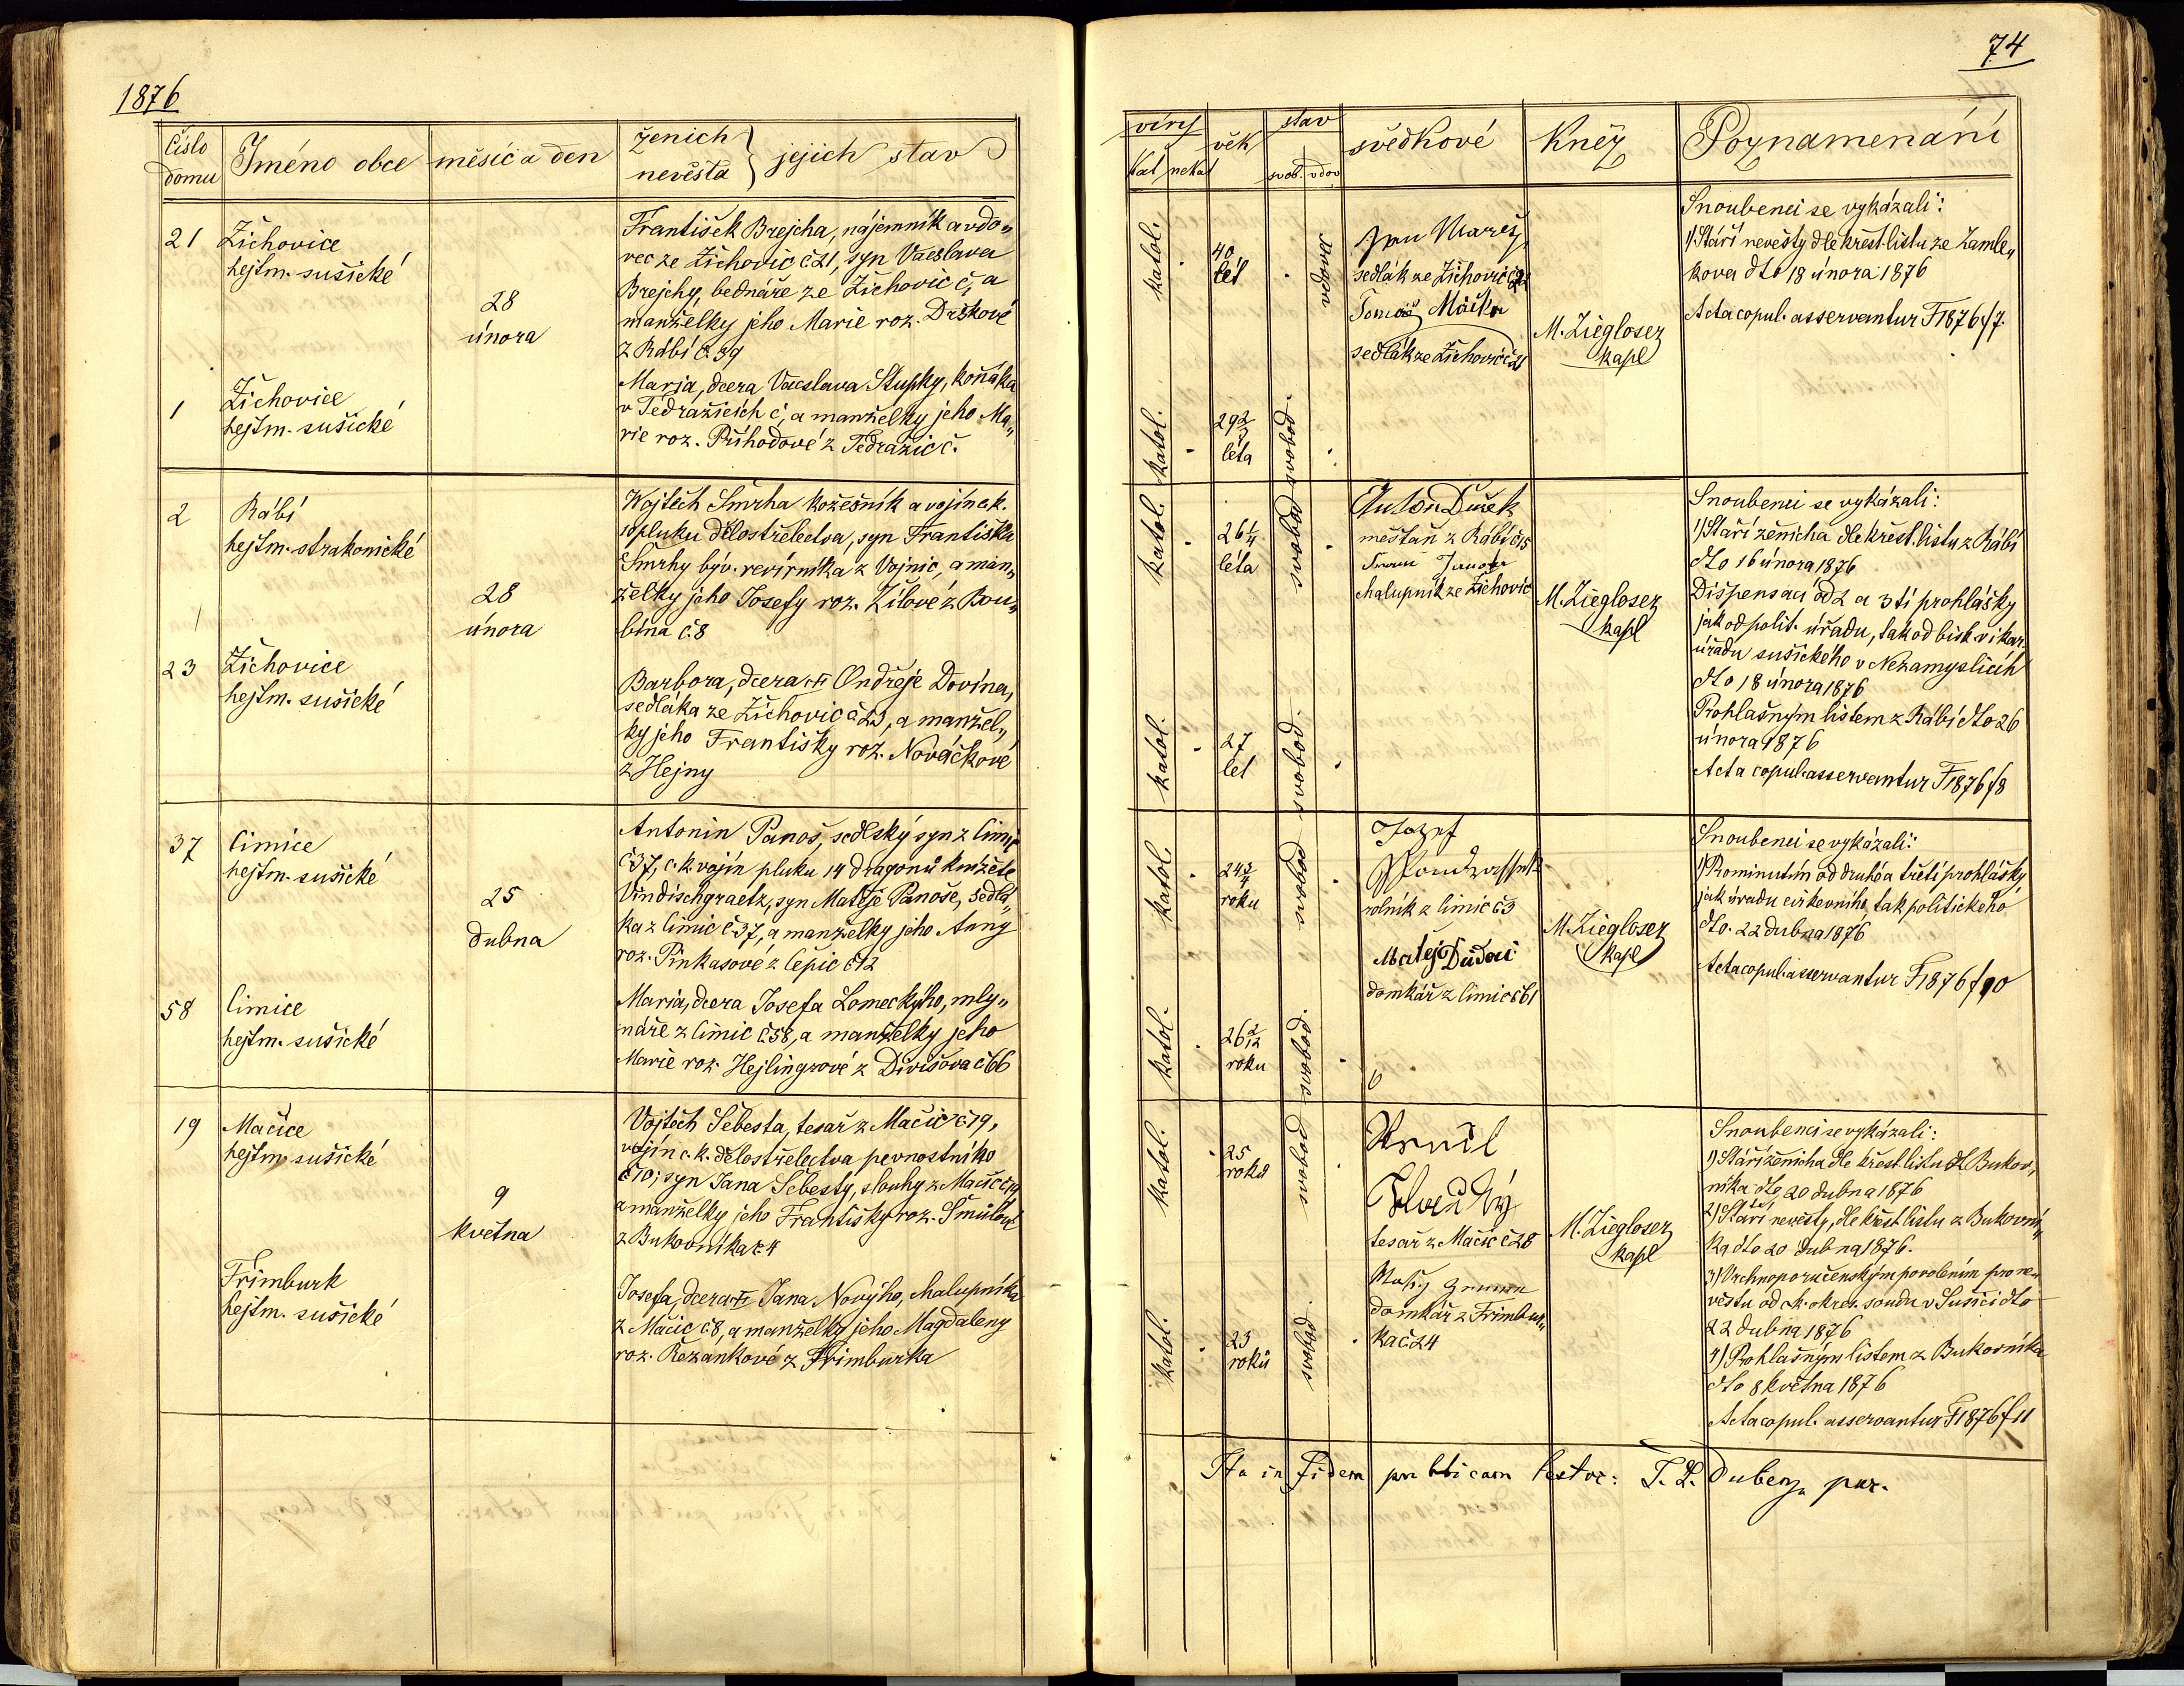 1876
74
Číslo domu
Jméno obce
měsíc a den
ženich
nevěsta
jejich stav
víry
kat nekat
věk
stav
svob. vdov
svědkové
Kněz
Poznamenání
21
Žichovice
hejtm. sušické
28
února
František Brejcha, nájemník a vdo„
vec ze Žichovic č. 21, syn Vácslava
Brejchy, bednáře ze Žichovic č, a
manželky jeho Marie roz. Drškové
z Rábí č. 39
1
Žichovice
hejtm. sušické
Marja, dcera Vácslava Stupky, koňáka
v Tedražicích č, a manželky jeho Ma„
rie roz. Příhodové z Tedražic č.
katol.
40
let
vdovec
katol.
29 2/3
léta
svobod.
Jan Mareš
sedlák ze Žichovic
Tomáš
sedlák ze Žichovic
M. Ziegloser
kapl
Snoubenci se vykázali:
1) Stáří nevěsty dle křest. listu ze Zamle„
kova dto 18 února 1876
Acta copul. asservantur F 1876 f 7.
2
Rábí
hejtm. strakonické
28
února
Wojtěch Smrha kožešník a vojín c. k.
10 pluku dělostřelectva, syn Františka
Smrhy býv. revírníka z Vojnic, a man„
želky jeho Josefy roz. Žílové z Bou„
bína č. 8
23
Žichovice
hejtm. sušické
Barbora, dcera Ondřeje Dovína,
sedláka ze Žichovic č 23, a manžel„
ky jeho Františky roz. Nováčkové
z Hejny
katol.
26 1/4
léta
svobod
katol.
27
let
svobod.
Anton Dušek
měšťan z Rábí č 15
chalupník ze Žichovic
M. Ziegloser
kapl
Snoubenci se vykázali:
1) Stáří ženicha dle křest. listu z Rábí
dto 16 února 1876
Dispensací od 2 a 3tí prohlášky
jak od polit. úřadu, tak od bisk. vikar.
úřadu sušického v Nezamyslicích
dto 18 února 1876
Prohlašným listem z Rábí dto 26
února 1876
Acta copul. asservantur F 1876 f 8
37
Čimice
hejtm. sušické
25
dubna
Antonín Panoš, sedlský syn z Čimic
č. 37, c. k. vojín pluku 14 dragonů knížete
Vindischgraetz, syn Matěje Panoše, sedlá„
ka z Čimic č. 37, a manželky jeho Anny
roz. Pinkasové z Čepic č 12
58
Čimice
hejtm. sušické
Maria, dcera Josefa Lomeckýho, mly„
náře z Čimic č. 58, a manželky jeho
Marie roz. Hejlingrové z Divišova č 66
katol.
24 3/4
roku
svobod
katol.
26 2/12
roku
svobod.
Jozef
rolník z Čimic č 3
Matěj
domkář z Čimic č 61
M. Ziegloser
kapl
Snoubenci se vykázali:
1) Prominutím od druhé a třetí prohlášky
jak úradu církevního, tak politického
dto. 22 dubna 1876
Acta copul. asservantur F 1876 f 10
19
Mačice
hejtm. sušické
9
května
Vojtěch Šebesta, tesař z Mačic č 19,
vojín c. k. dělostřelectva pevnostního
č 10; syn Jana Šebesty, slouhy z Mačic č 19
a manželky jeho Františky roz.
z Bukovníka č. 4
Frimburk
hejtm. sušické
Josefa, dcera Jana Novýho, chalupníka
z Mačic č. 8, a manželky jeho Magdaleny
roz. Řezankové z Frimburka
katol.
25
roků
svobod
katol.
23
roků
svobod.
tesař z Mačic č 28
domkář z Frimbur„
ka č. 24
M. Ziegloser
kapl
Snoubenci se vykázali:
1) Stáří ženicha dle křest listu z Bukov„
níka dto 20 dubna 1876
2) Stáří nevěsty, dle křest listu z Bukovní„
ka dto 20 dubna 1876.
3) Vrchnoporučenským povolením pro ne„
věstu od c. k. okres. soudu v Sušici dto
22 dubna 1876
4) Prohlašným listem z Bukovníka
dto 8 května 1876
Acta copul. asservantur F 1876 f 11
Ita in fidem publicam testor: